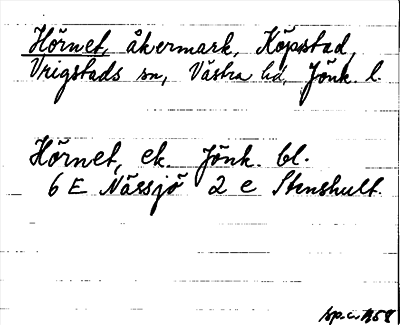 Hörnet, åkermark, Köpstad,
Vrigstads sn, Västra hd, Jönk. l.
Hörnet, ek. Jönk. bl.
6 E Nässjö 2 e Stenshult.